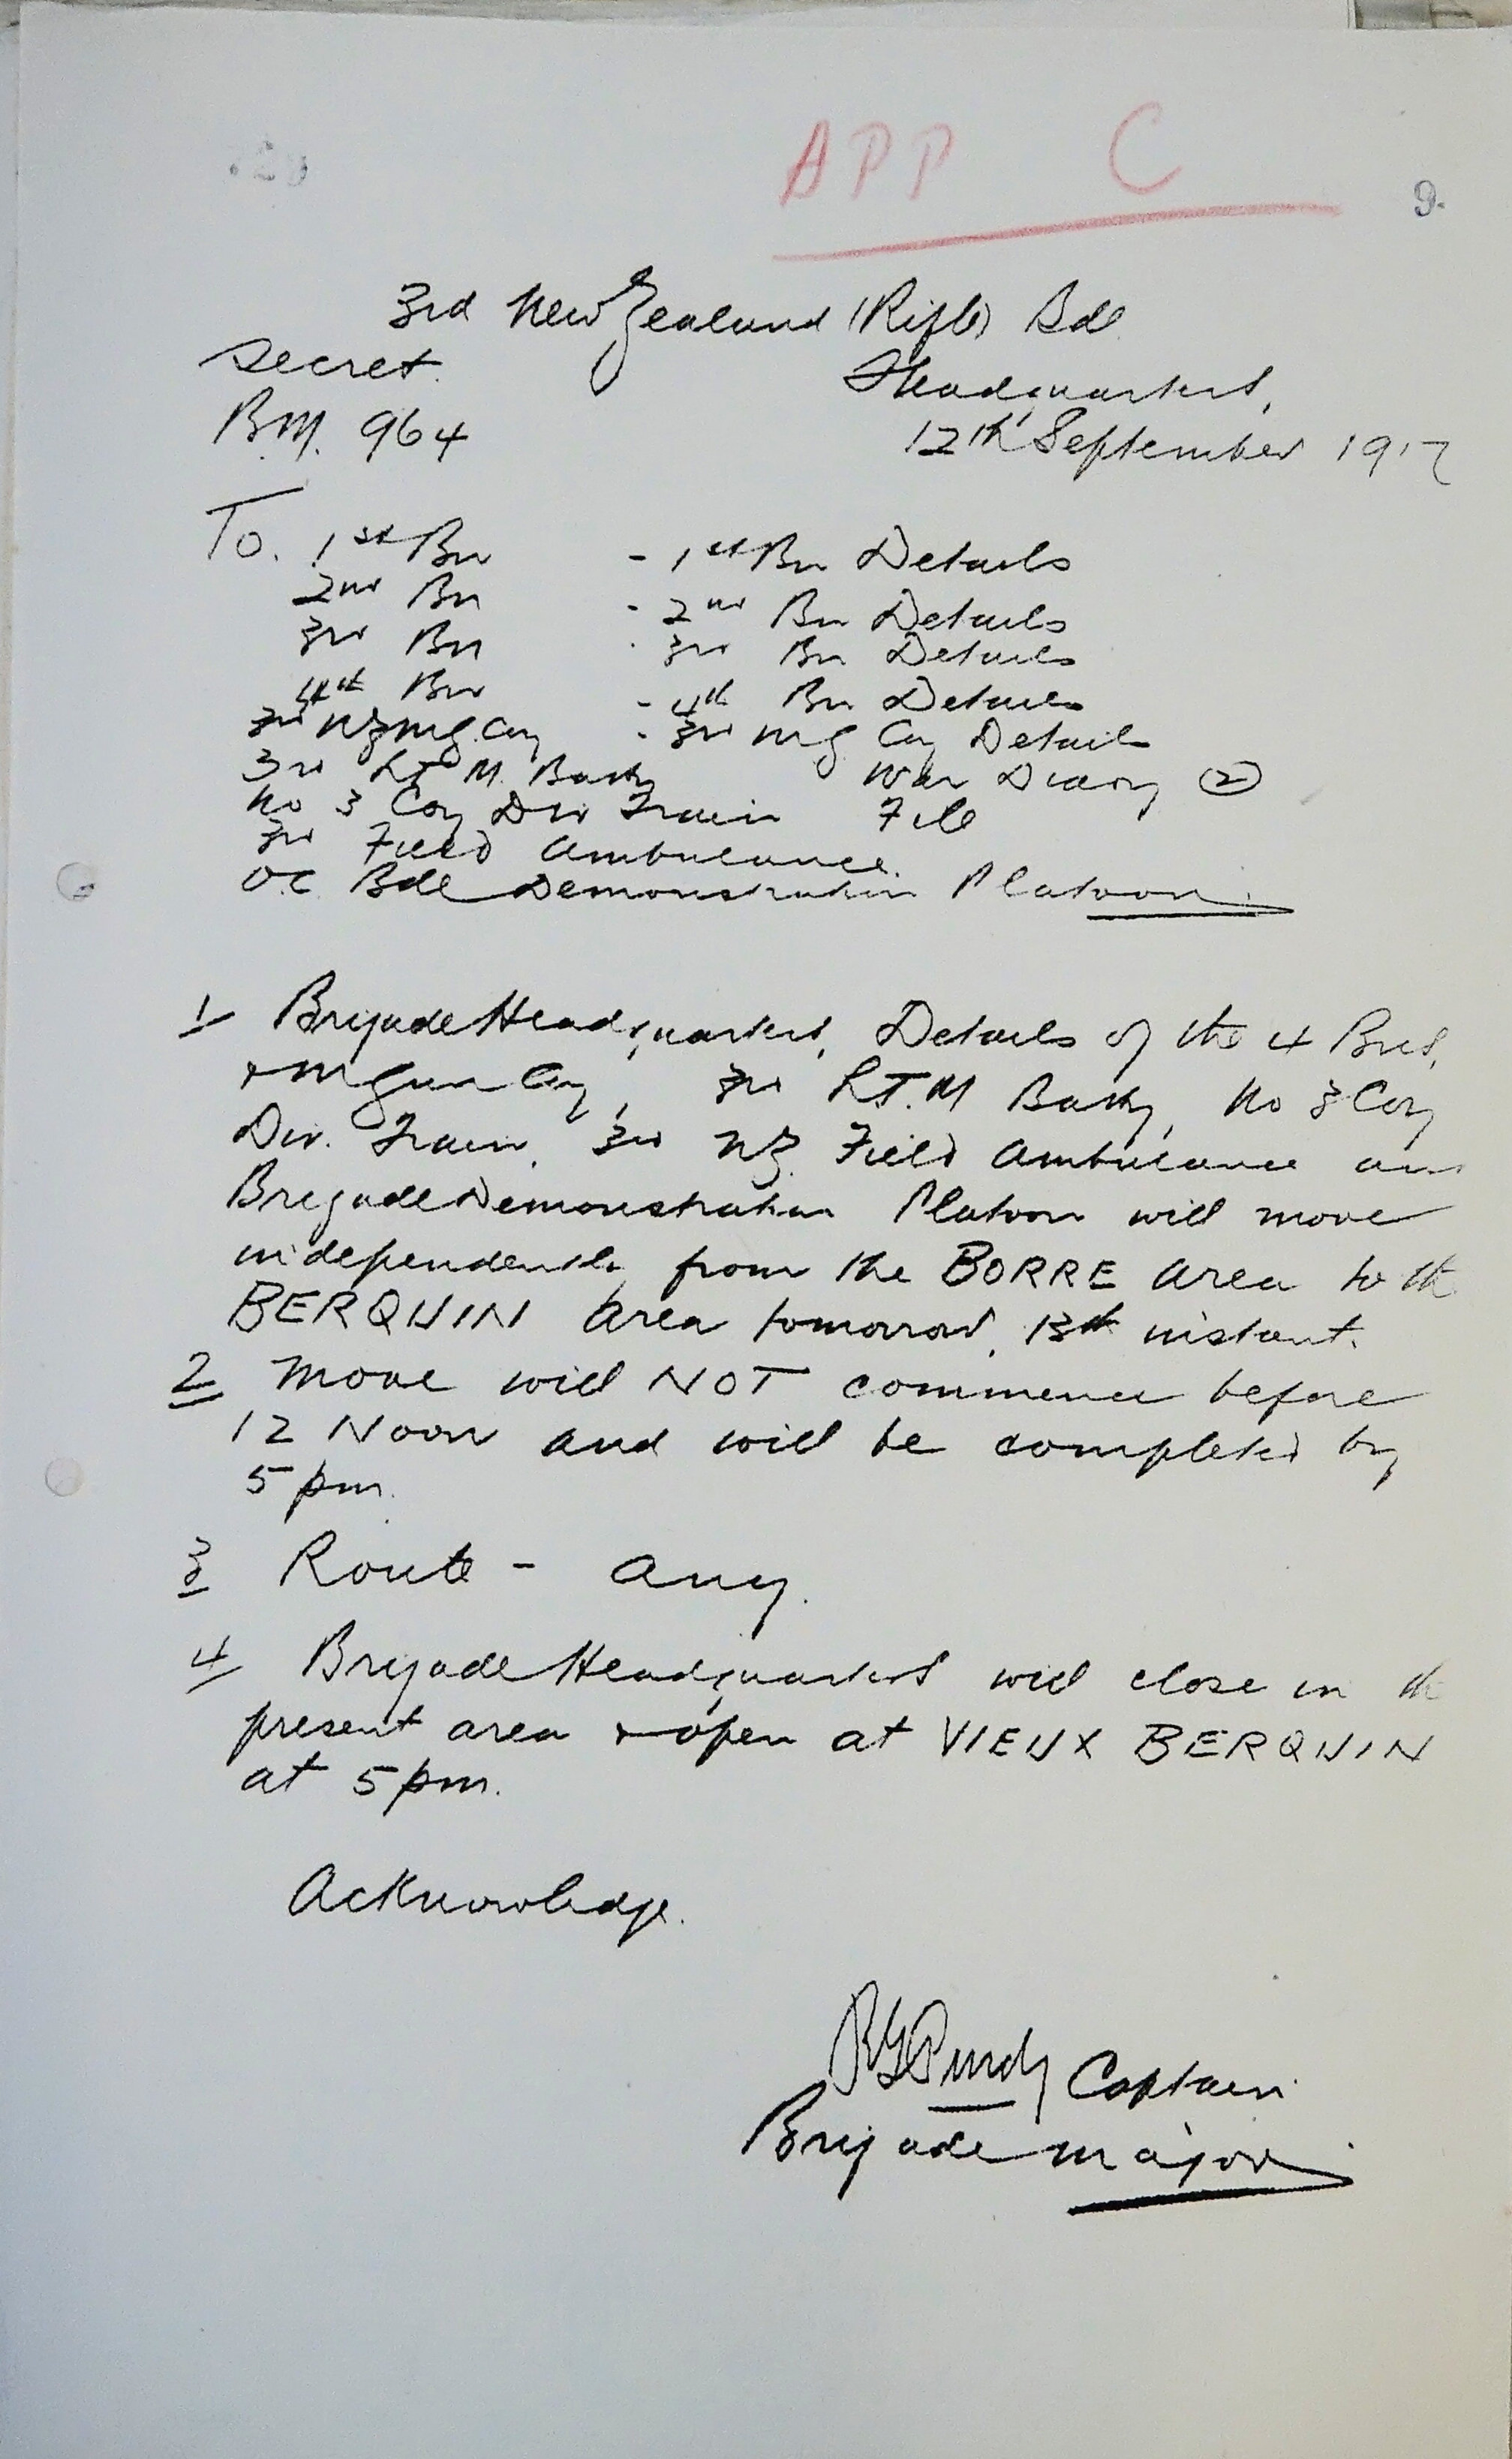 APP C
9.
3rd New Zealand (Rifle) Bde
Secret. Headquarters,
B.M. 964 12th September 1917
To. 1st Bn - 1st Bn Details
2nd Bn - 2nd Bn Details
3rd Bn - 3rd Bn Details
4th Bn - 4th Bn Details
3rd NZ MG. Coy - 3rd MG Coy Details
3rd LT M. Batty War Diary (2)
No 3 Coy Div Train File
3rd Field Ambulance.
O.C Bde Demonstration Platoon.
1/ Brigade Headquarters, Details of the 4 Bns,
& M Gun Coy, 3rd L.T.M Batty, No 3 Coy
Div. Train, 3rd NZ. Field Ambulance and
Brigade Demonstration Platoon will move
independently from the BORRE area to the
BERQUIN area tomorrow, 13th instant.
2 Move will NOT commence before
12 Noon and will be completed by
5 pm.
3 Route - any.
4/ Brigade Headquarters will close in the
present area & open at VIEUX BERQUIN
at 5 pm.
Acknowledge.
RG Purdy Captain
Brigade Major